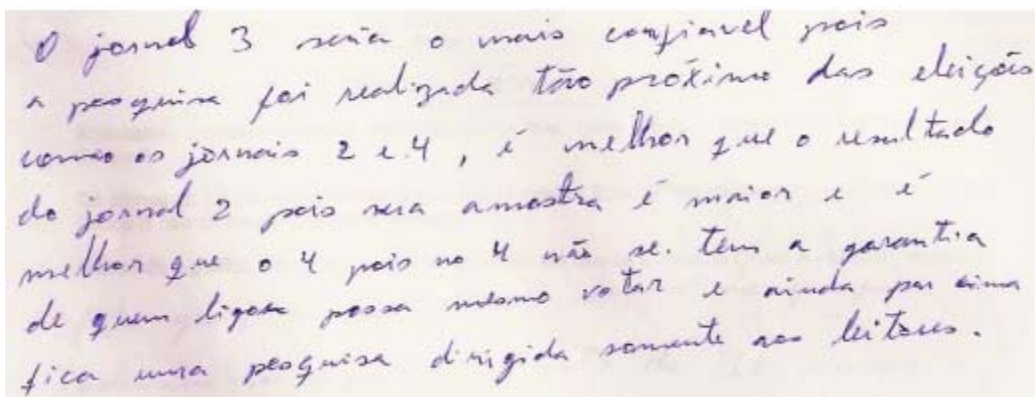 O jornal 3 seria o mais confiavel pois
a pesquisa foi realizada tão próximo das eleições
como os jornais 2 e 4, é melhor que o resultado
do jornal 2 pois sua amostra é maior e é
melhor que o 4 pois no 4 não se tem a garantia
de quem ligou possa mesmo votar e ainda por cima
fica uma pesquisa dirigida somente aos leitores.